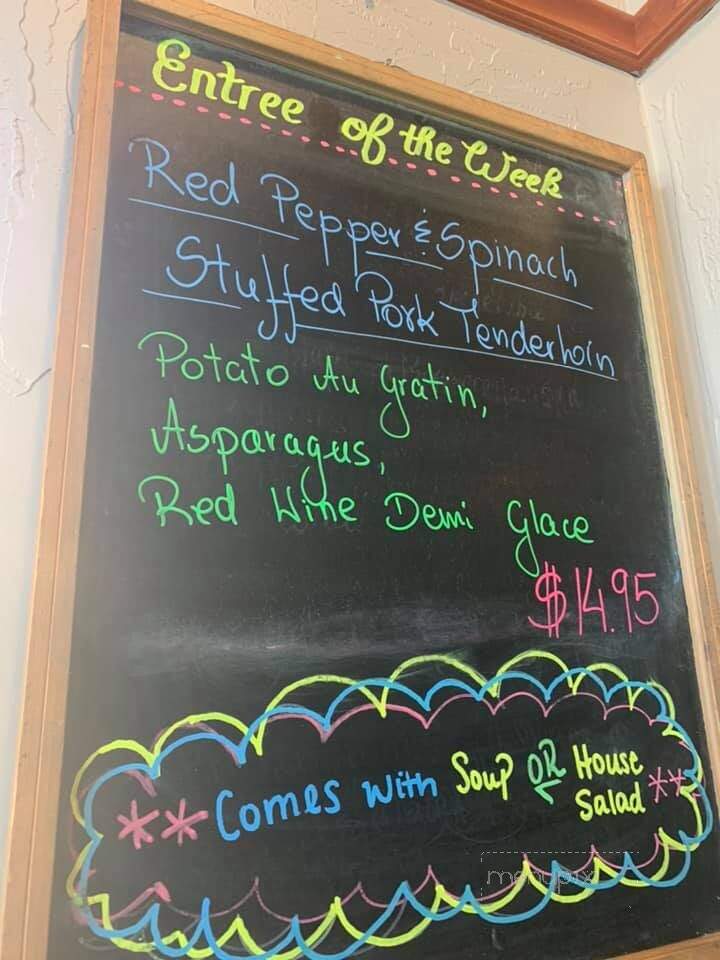 Entree of the Week
Red Pepper & Spinach
Stuffed Pork Tenderloin
Potato Au Gratin,
Asparagus,
Red Wine Demi Glace
$14.95
** Comes With Soup OR House Salad **
menupix